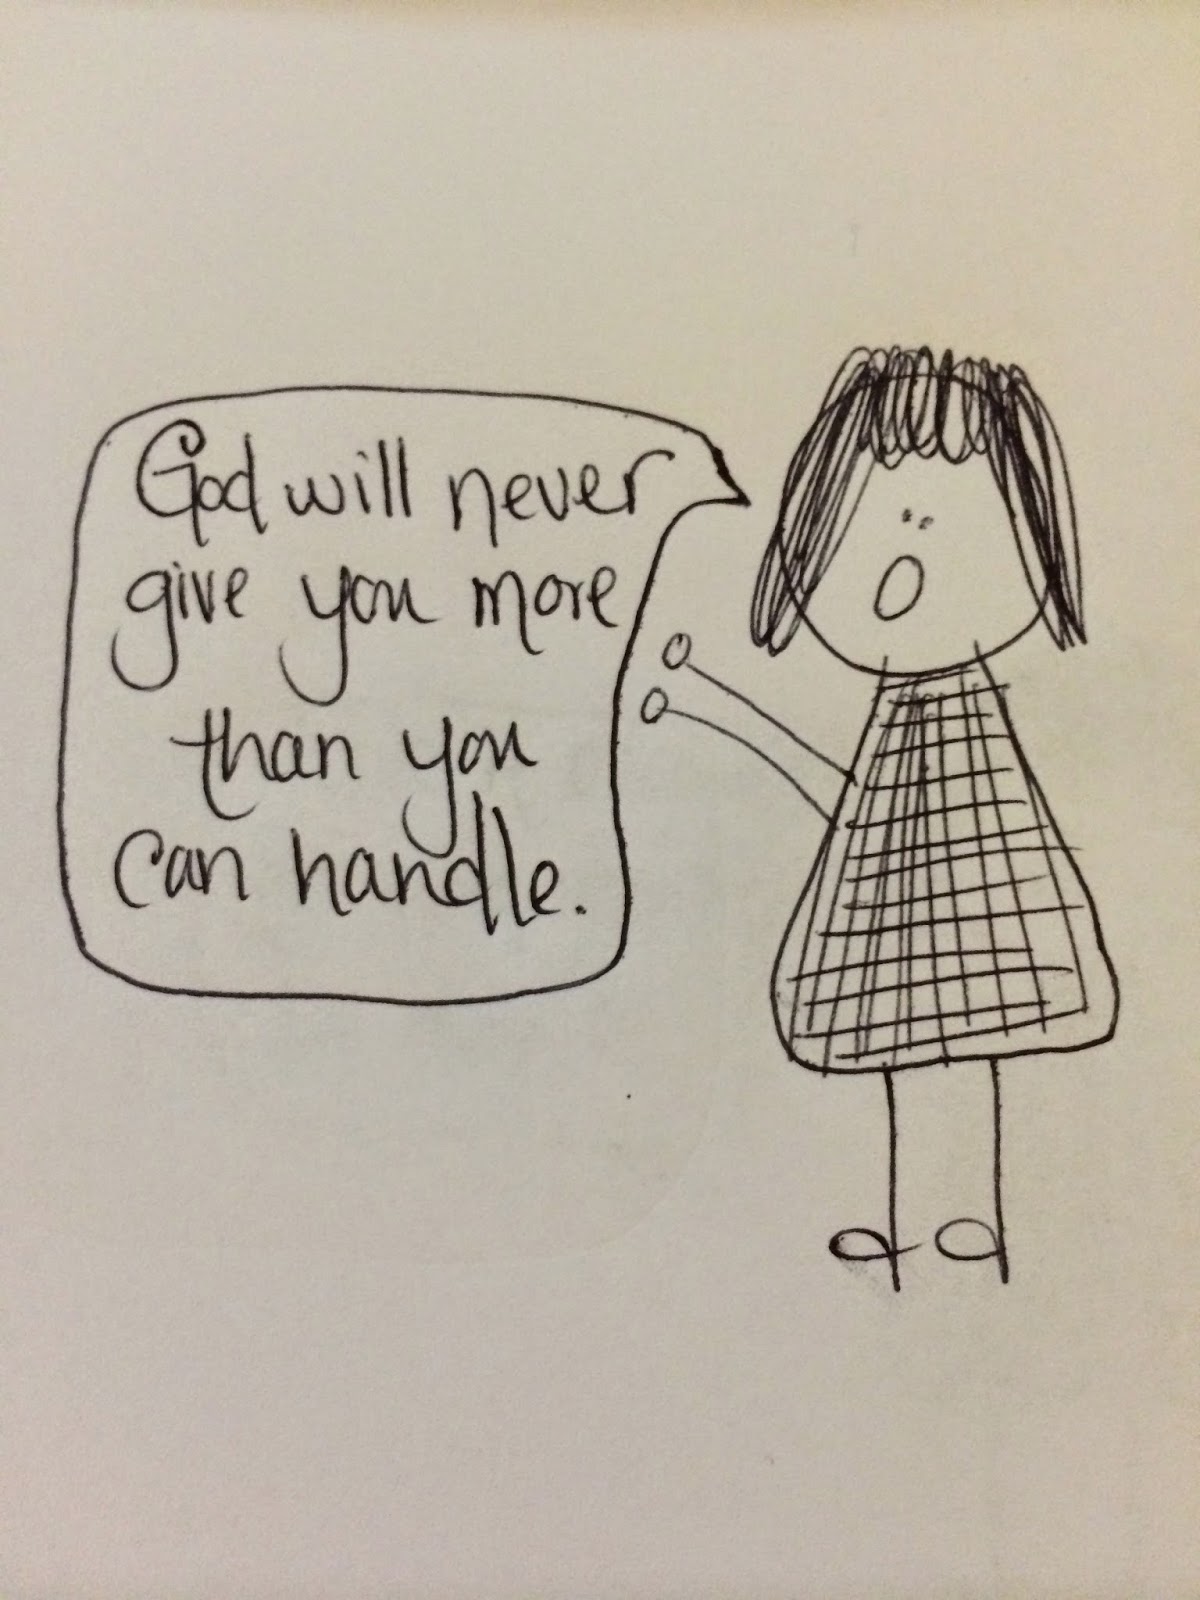 God will never
give you more
than you
can handle.